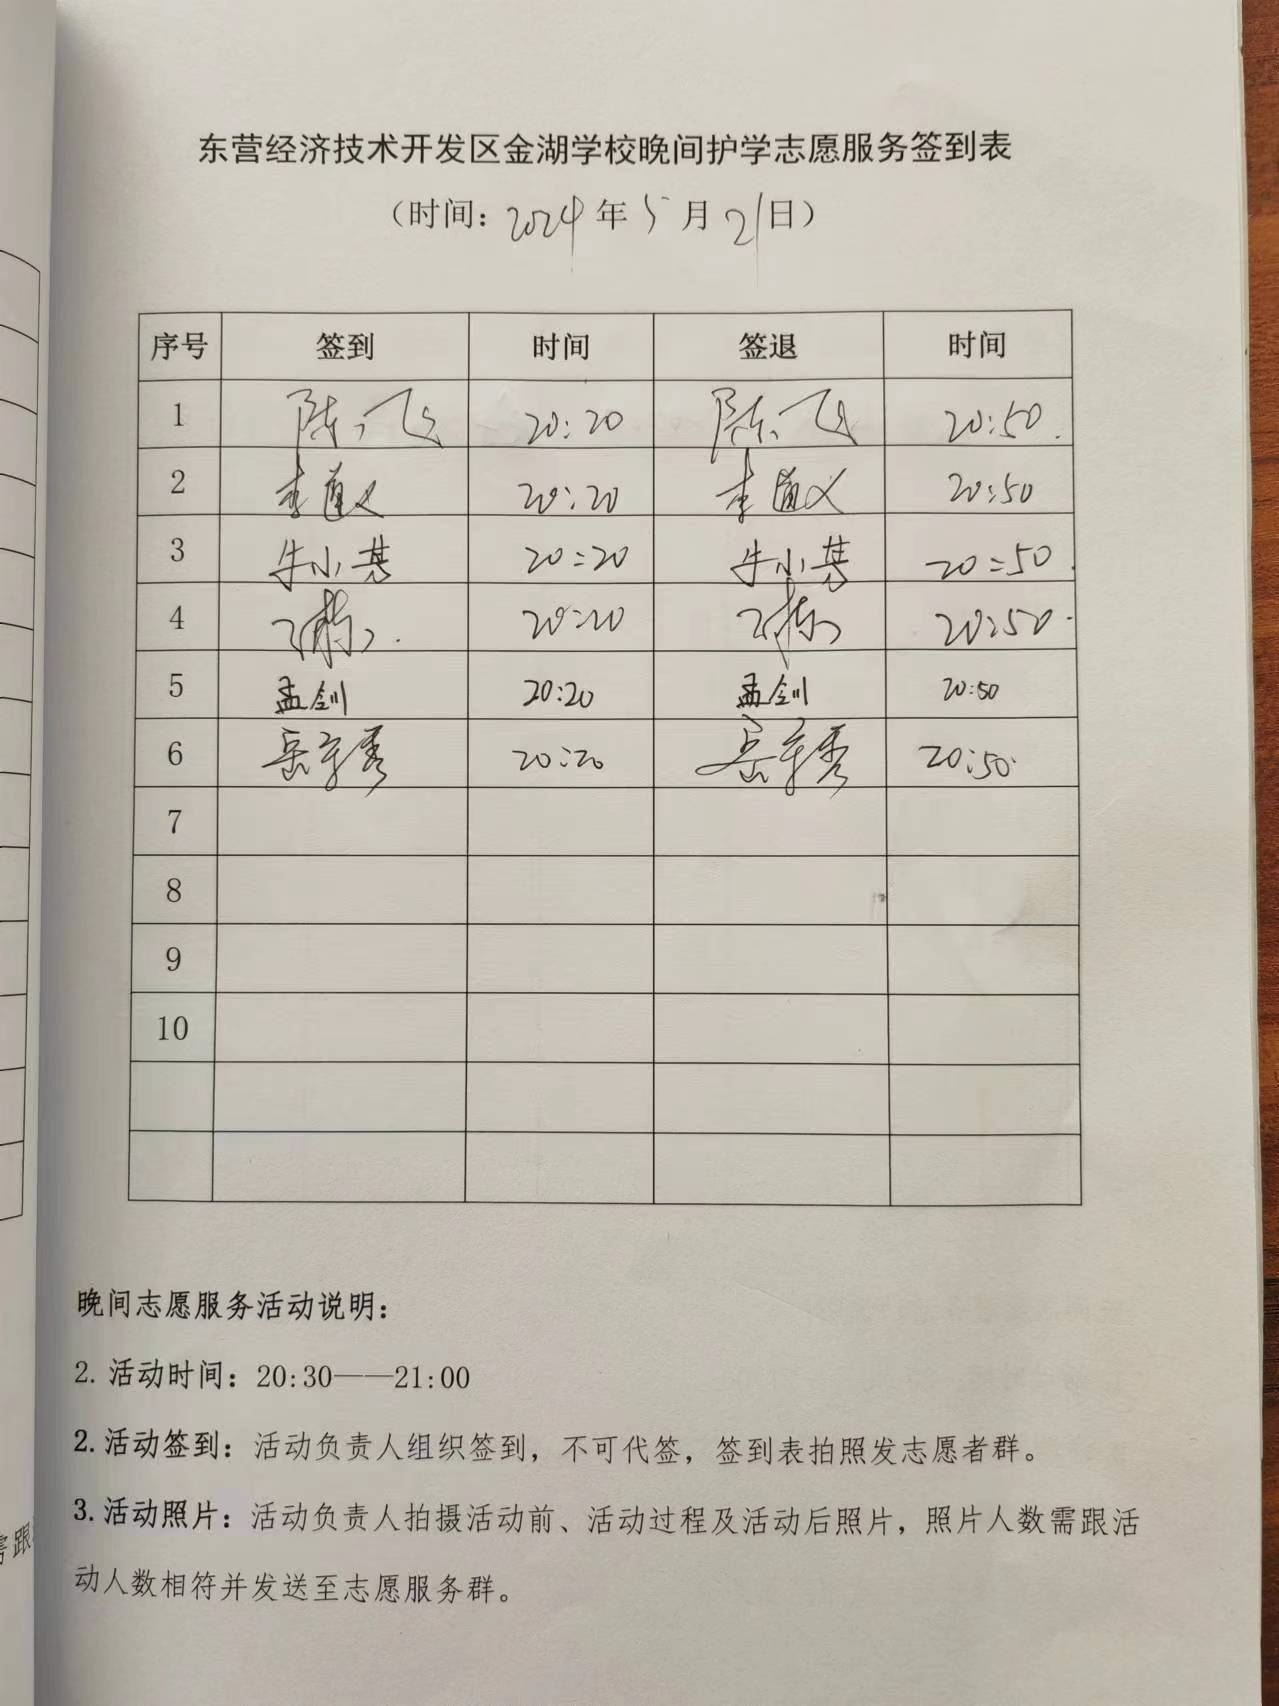 东营经济技术开发区金湖学校晚间护学志愿服务签到表
（时间：2024年5月21日）
序号 签到 时间 签退 时间
1 陈飞 20:20 陈飞 20:50
2 李道义 20:20 李道义 20:50
3 牛小 20:20 牛小 20:50
4 20:20 20:50
5 孟剑 20:20 孟剑 20:50
6 岳秀 20:20 岳秀 20:50
7
8
9
10
晚间志愿服务活动说明：
2. 活动时间：20:30——21:00
2. 活动签到：活动负责人组织签到，不可代签，签到表拍照发志愿者群。
3. 活动照片：活动负责人拍摄活动前、活动过程及活动后照片，照片人数需跟活
动人数相符并发送至志愿服务群。